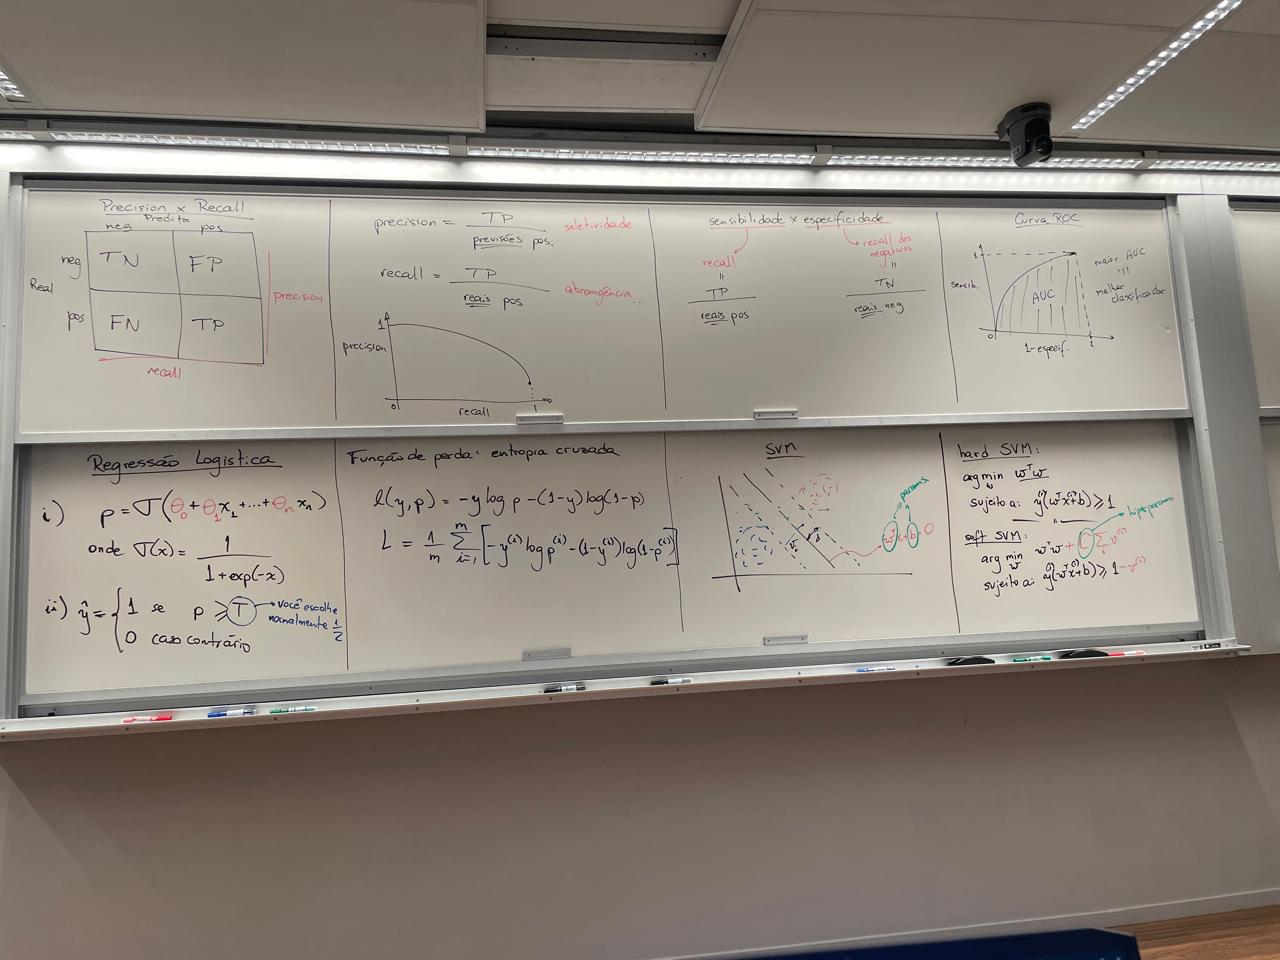 Precision x Recall
Predita
neg pos
neg TN FP
Real
pos FN TP
precision
recall
precision = TP / previsões pos. seletividade
recall = TP / reais pos abrangência...
1
precision
0 recall 1
sensibilidade x especificidade
recall
=
TP / reais pos
recall dos negativos
=
TN / reais neg
Curva ROC
1
sensib.
AUC
0 1-especif. 1
maior AUC
melhor
classificador
Regressão Logística
i) p = σ(θ₀ + θ₁x₁ + ... + θₙxₙ)
onde σ(x) = 1 / (1 + exp(-x))
ii) ŷ = { 1 se p ≥ T → você escolhe
normalmente 1/2
0 caso contrário
Função de perda: entropia cruzada
l(y, p) = -y log p - (1-y) log(1-p)
L = 1/m Σ_{i=1}^{m} [-y⁽ⁱ⁾ log p⁽ⁱ⁾ - (1-y⁽ⁱ⁾) log(1-p⁽ⁱ⁾)]
SVM
params.
wᵀx + b = 0
hard SVM:
arg min_w wᵀw
sujeito a: y⁽ⁱ⁾(wᵀx⁽ⁱ⁾+b) ≥ 1
soft SVM:
arg min_w wᵀw + C Σ_i v⁽ⁱ⁾
hiperparam.
sujeito a: y⁽ⁱ⁾(wᵀx⁽ⁱ⁾+b) ≥ 1 - v⁽ⁱ⁾